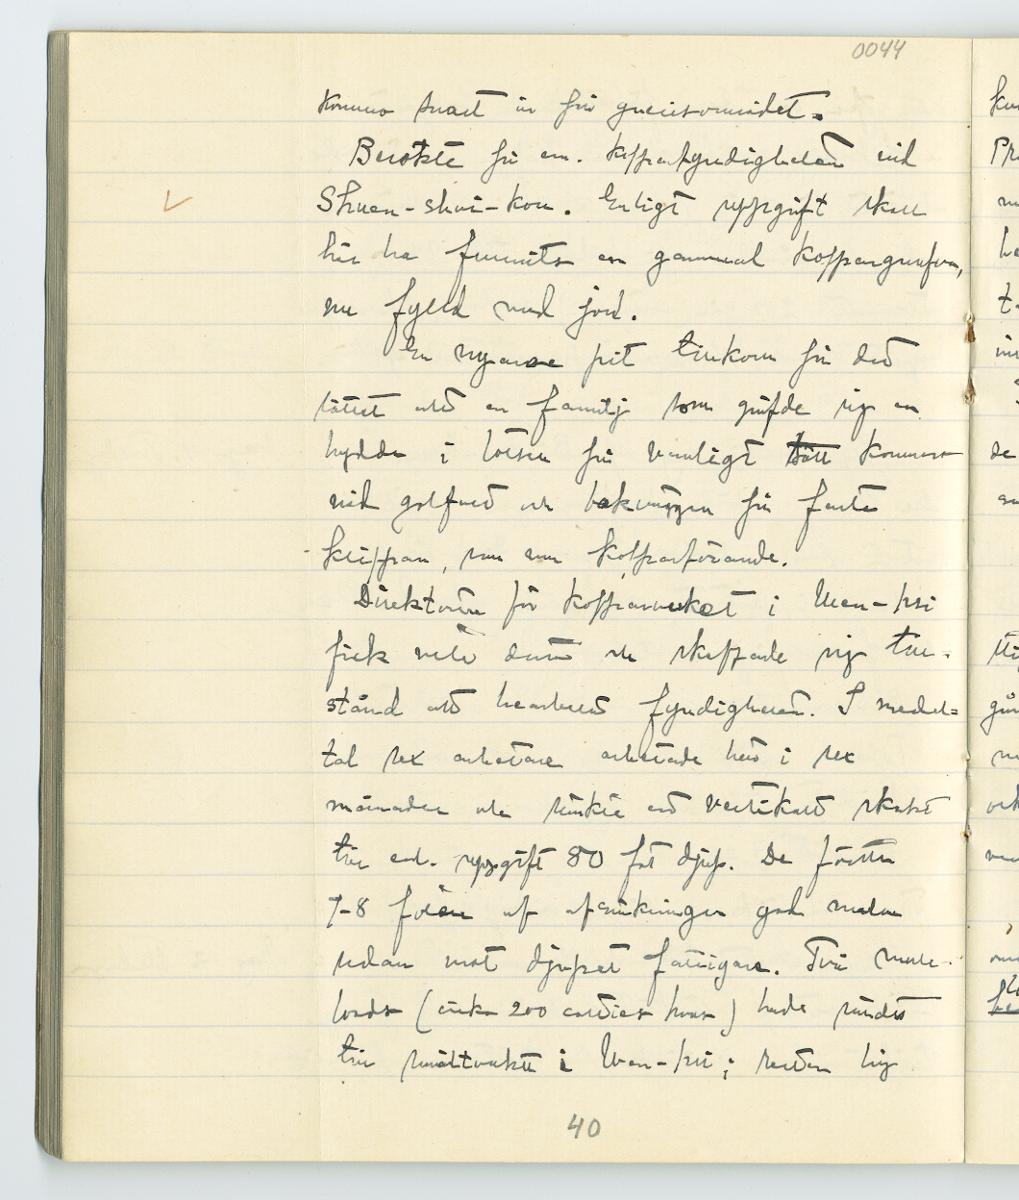 0044
komma snart in på gneisområdet.
Besökte på em. kopparfyndigheten vid
Shuen-shui-kou. Enligt uppgift skall
här ha funnits en gammal koppargrufva,
nu fylld med jord.
En nyare pit tillkom på det
sättet att en familj som gräfde sig en
hydda i lössen på vanligt sätt kommo
vid golfvet och bakväggen på fasta
klippan, som var kopparförande.
Direktören för kopparverket i Wen-hsi
fick veta detta och skaffade sig till-
stånd att bearbeta fyndigheten. I medel-
tal sex arbetare arbetade här i sex
månader och sänkte ett vertikalt schakt
till enl. uppgift 80 fot djup. De första
7-8 foten af afsänkningen god malm
sedan mot djupet fattigare. Två mule-
loads (cirka 200 catties hvar) hade sändts
till smältverket i Wen-hsi; resten låg
40